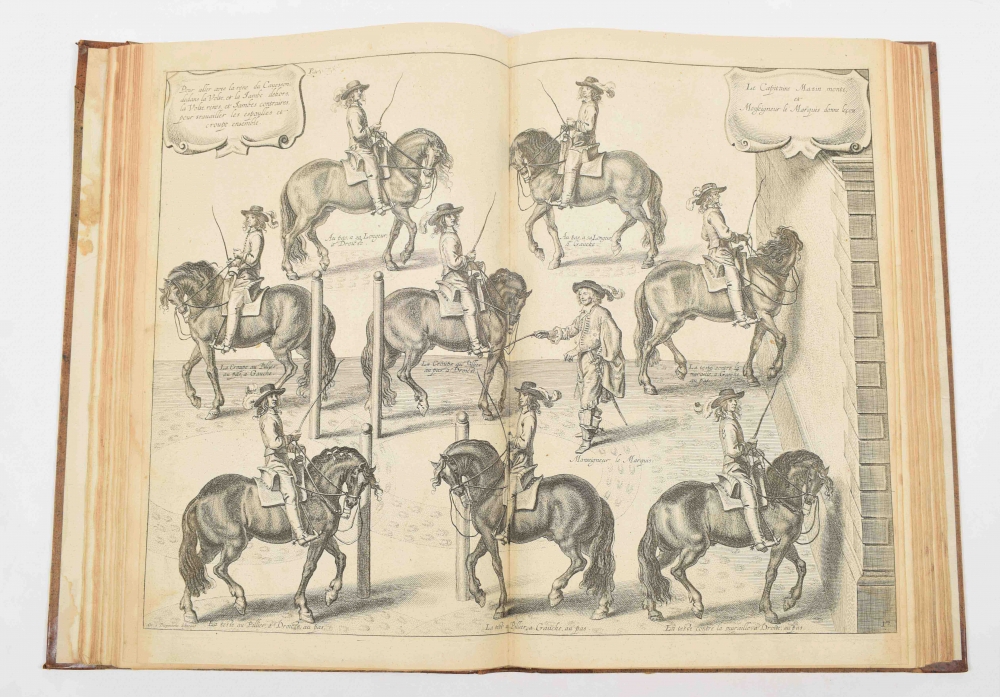 Pour aler avec la rene du Caueson,
dedans la Volte, et la Jambe dehors,
la Volte renes et Jambes contraires,
pour trauailler les espaulles et
croupe ensemble
Le Capitaine Mazin monte,
et
Monseigneur le Marquis donne leçon
Au pas, a sa Longeur
a Droicte.
Au pas, a sa Longeur
a Gauche.
La Croupe au Pilier,
au pas, a Gauche
La Croupe au Pilier,
au pas, a Droicte.
La
muraille, a Gauche
au pas.
Monseigneur le Marquis
La teste au Pillier, a Droicte, au pas.
a Gauche, au pas
La teste contre la muraille a Droite, au pas.